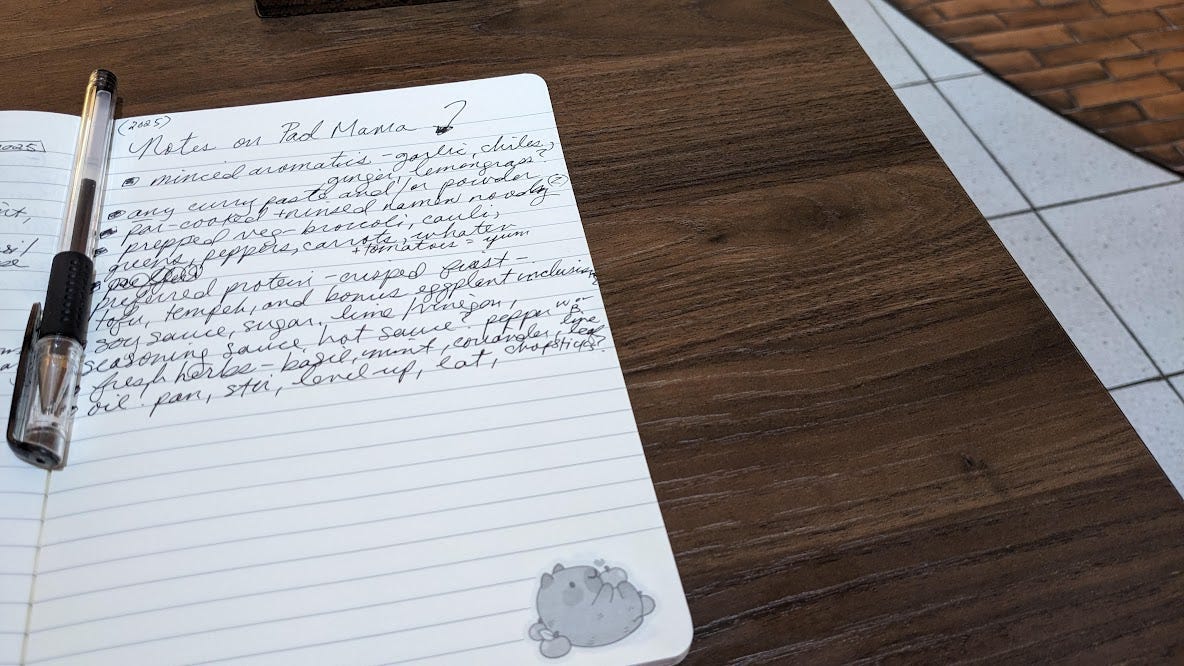 2025
(2025)
Notes on Pad Mama ?
minced aromatics - garlic, chiles,
ginger, lemongrass?
any curry paste and/or powder
par-cooked + rinsed ramen noods (2)
prepped veg - broccoli, cauli,
greens, peppers, carrots, whatev
+ tomatoes = yum
preferred protein - crisped first -
tofu, tempeh, and bonus eggplant inclusion
soy sauce, sugar, lime/vinegar,
seasoning sauce, hot sauce. pepper
fresh herbs - basil, mint, coriander, lime
oil pan, stir, level up, eat, chopsticks?